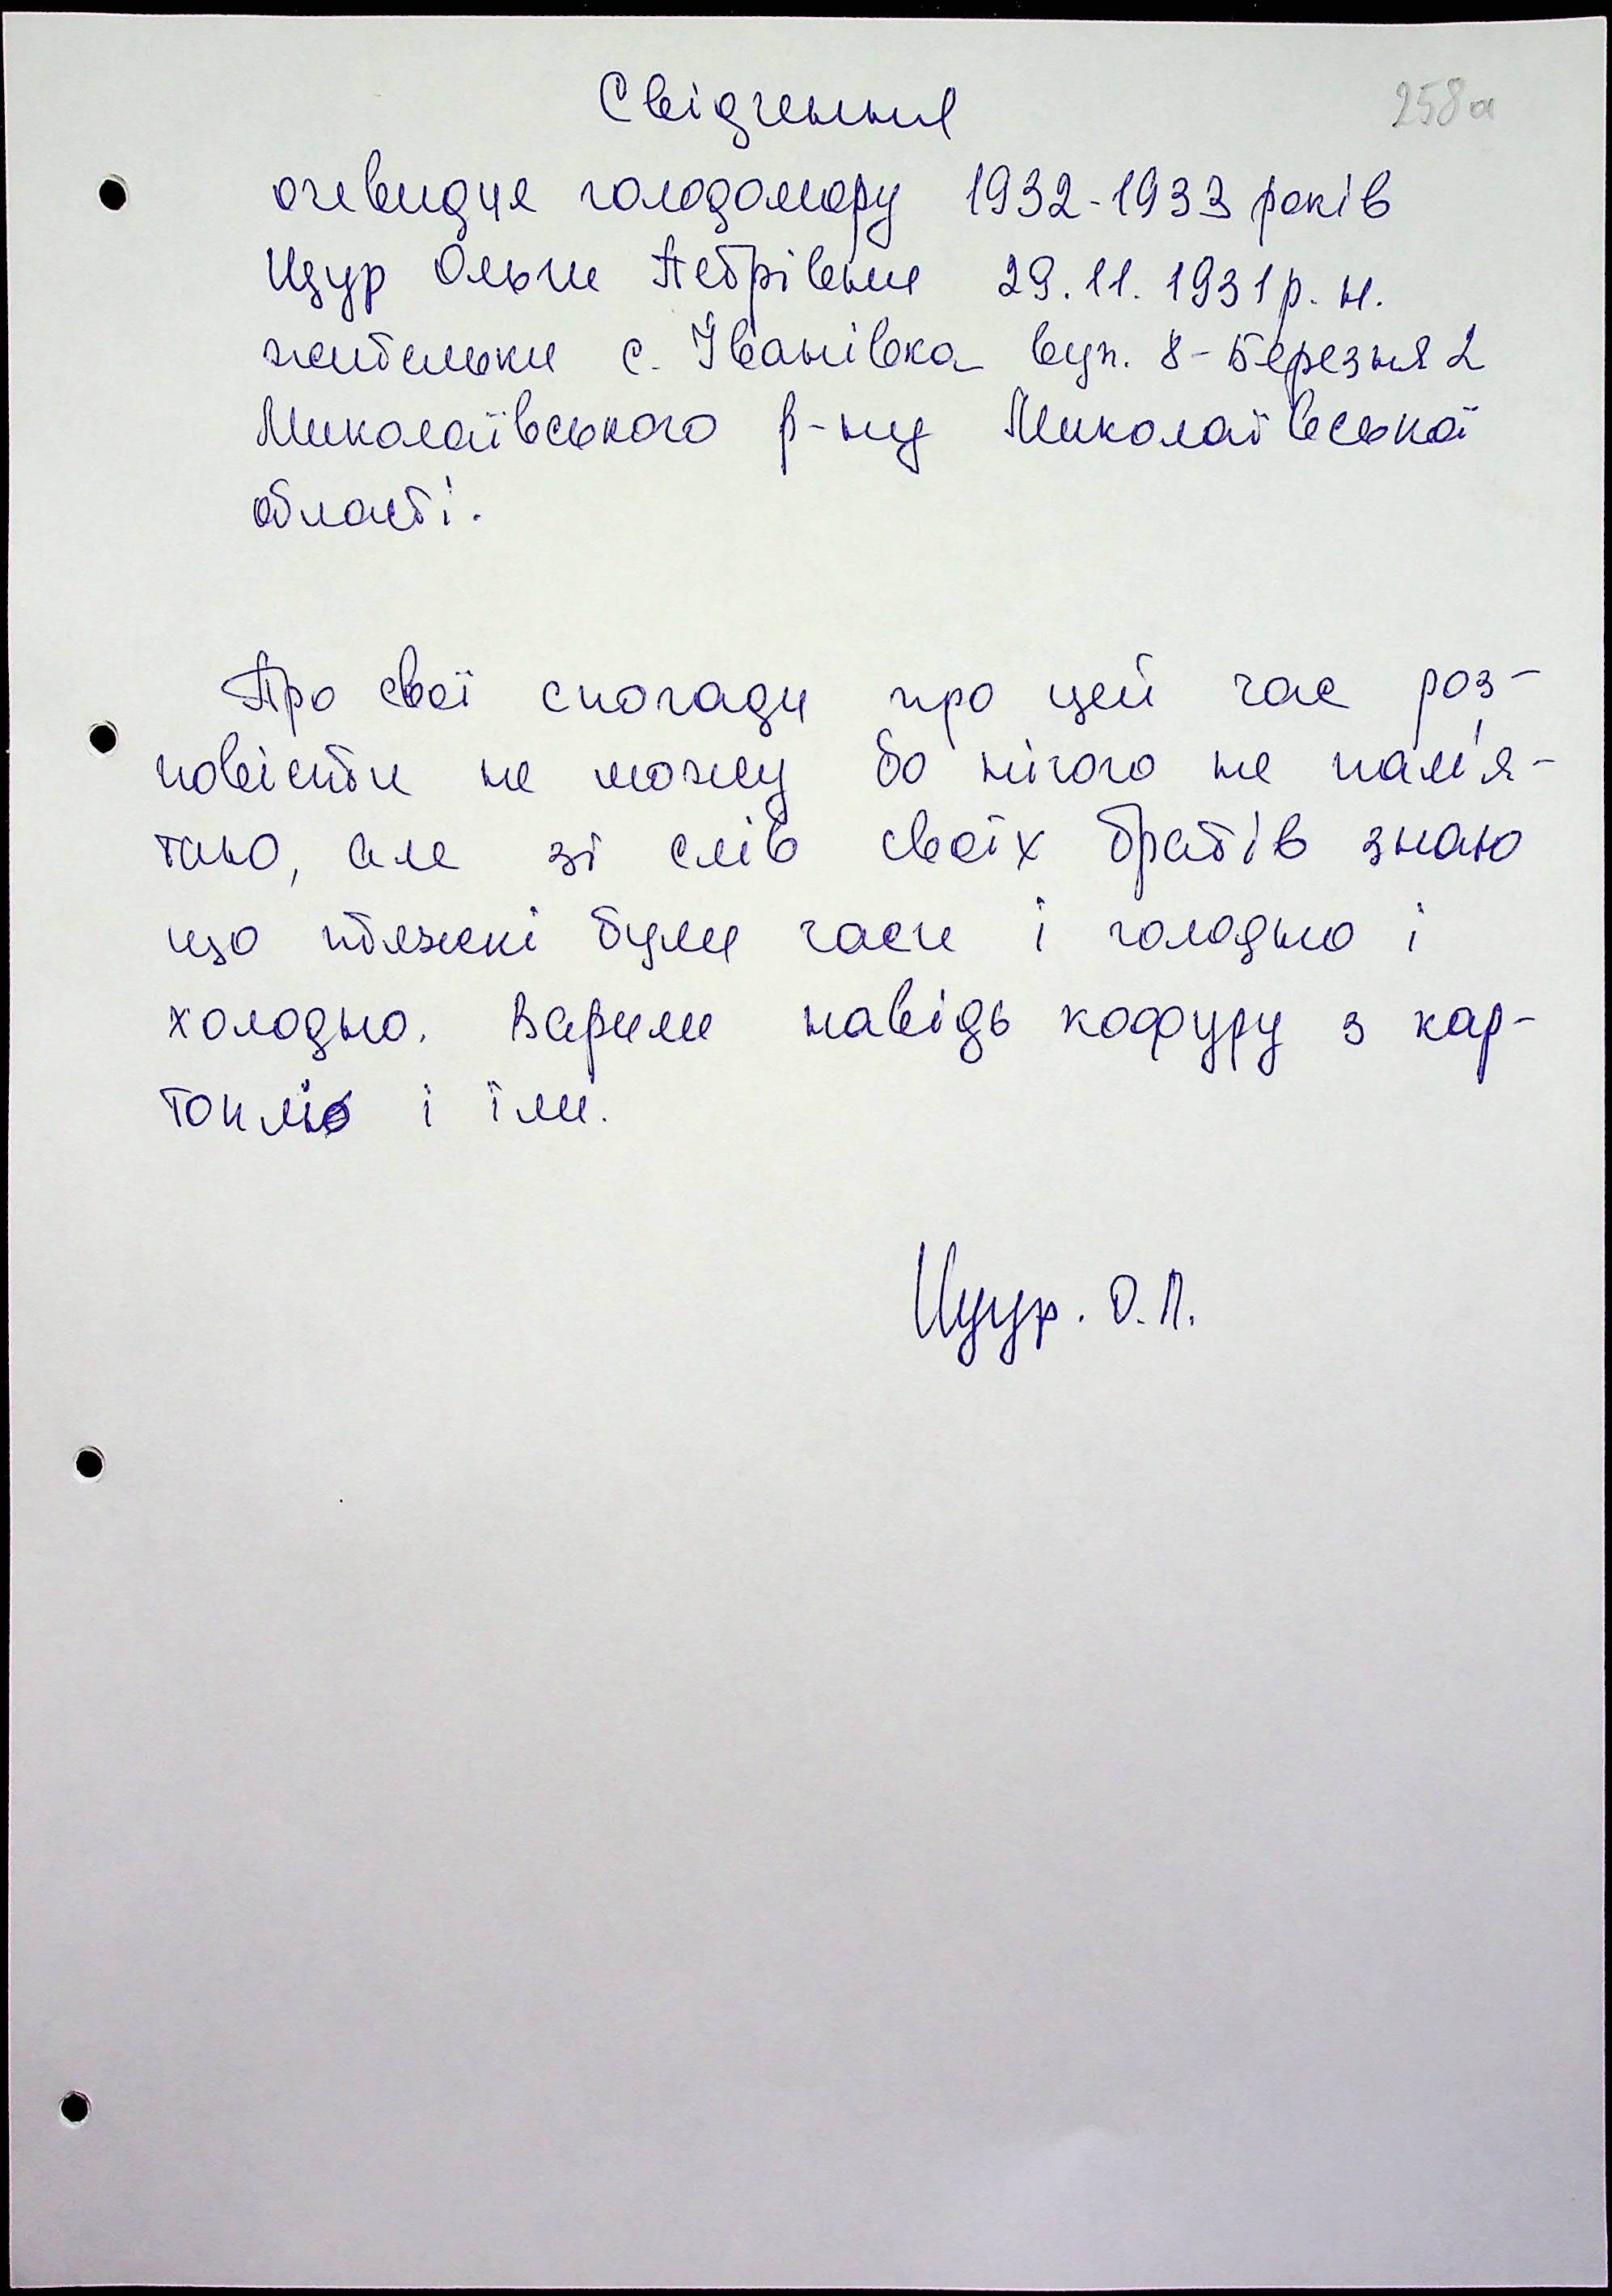 Свідчення
258а
очевидця голодомору 1932-1933 років
Щур Ольги Петрівни 29.11.1931р.н.
жительки с. Іванівка вул. 8-Березня 2
Миколаївського р-ну Миколаївської
області.
Про свої спогади про цей час роз-
повісти не можу бо нічого не пам'я-
таю, але зі слів своїх братів знаю
що тяжкі були часи і голодно і
холодно. Варили навідь кофуру з кар-
топлі і їли.
Щур. О.П.